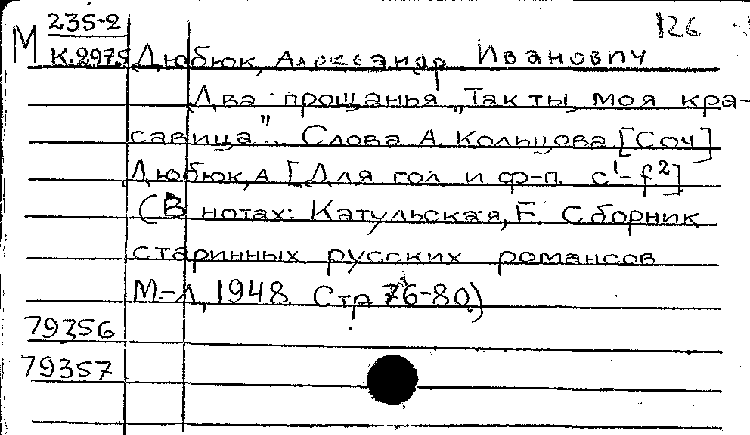 М 235-2 126
К.2975 Дюбюк, Александр Иванович
Два прощанья „Так ты, моя кра-
савица". Слова А. Кольцова [Соч]
Дюбюк, А [Для гол и ф-п. с¹-f²]
(В нотах: Катульская, Е. Сборник
старинных русских романсов
М.-Л, 1948 Стр 76-80)
79356
79357